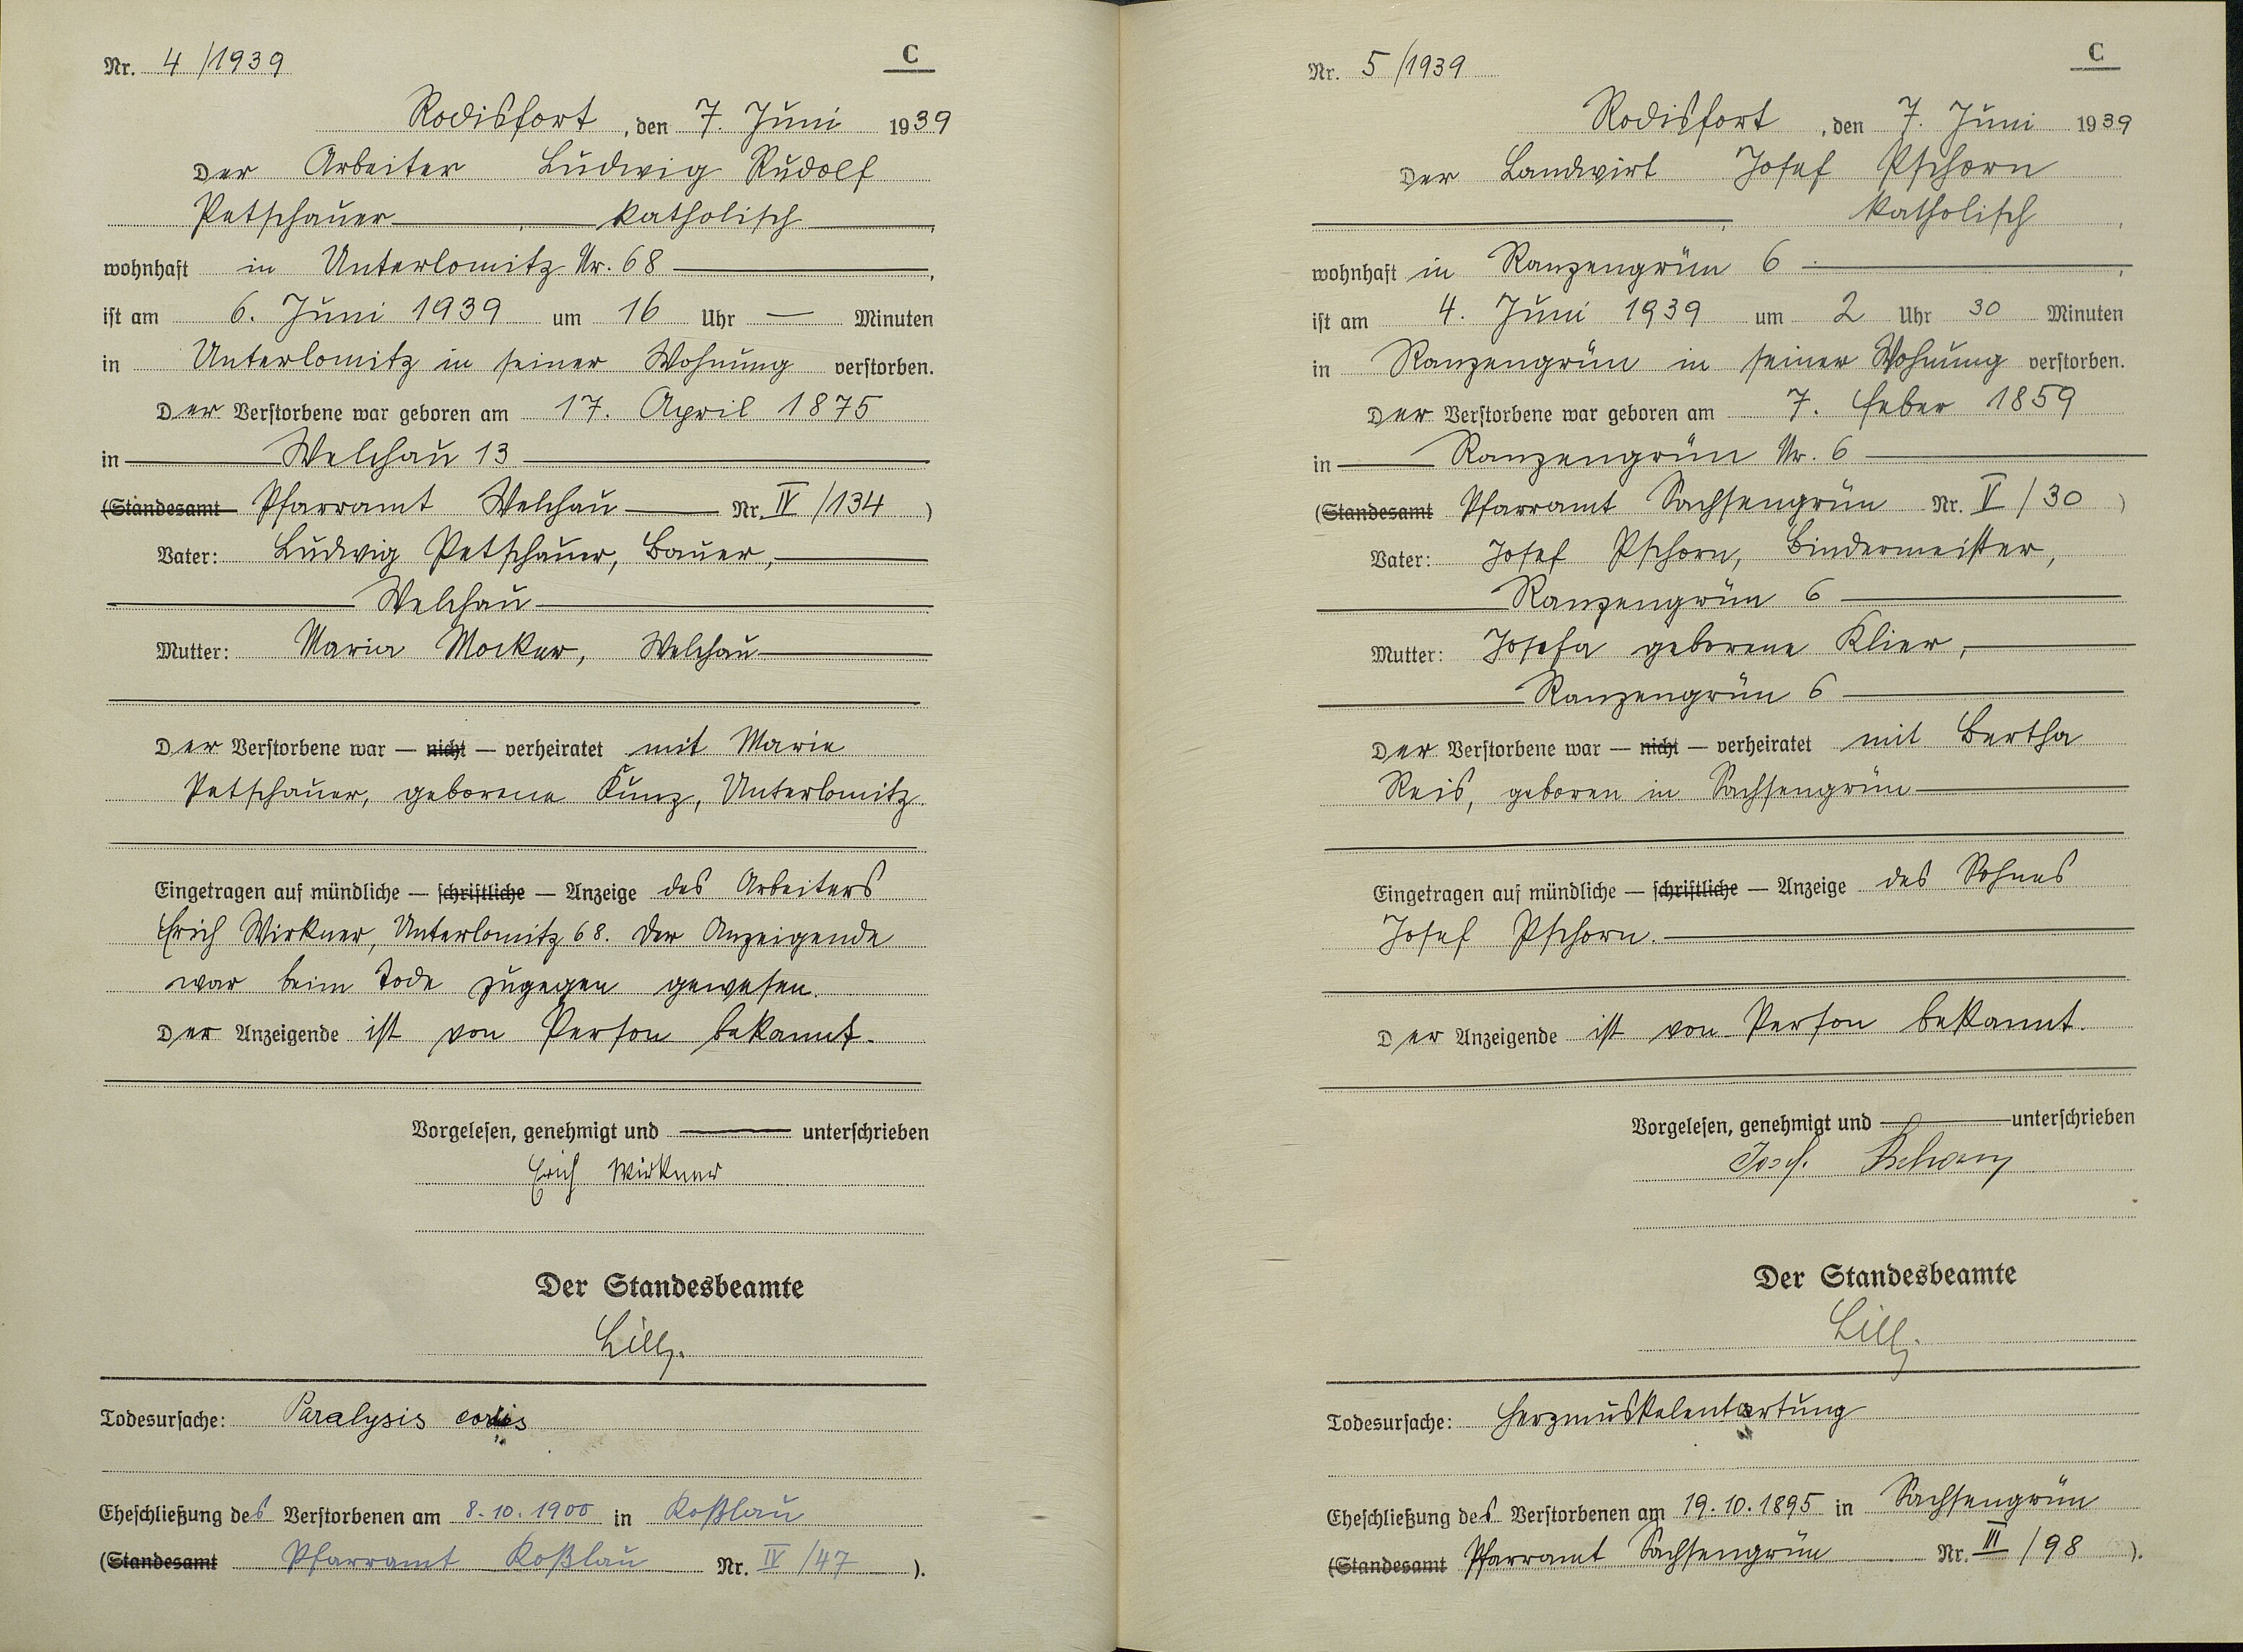 Nr. 4/1939
C
Rodisfort, den 7. Juni 1939
Der Arbeiter Ludwig Rudolf
Petschauer, katholisch,
wohnhaft in Unterlomitz Nr. 68,
ist am 6. Juni 1939 um 16 Uhr — Minuten
in Unterlomitz in seiner Wohnung verstorben.
Der Verstorbene war geboren am 17. April 1875
in Welchau 13
(Standesamt Pfarramt Welchau Nr. IV/134)
Vater: Ludwig Petschauer, Bauer,
Welchau
Mutter: Maria Mocker, Welchau
Der Verstorbene war — nicht — verheiratet mit Marie
Petschauer, geborene Kunz, Unterlomitz.
Eingetragen auf mündliche — schriftliche — Anzeige des Arbeiters
Erich Wirkner, Unterlomitz 68. Der Anzeigende
war beim Tode zugegen gewesen.
Der Anzeigende ist von Person bekannt.
Vorgelesen, genehmigt und — unterschrieben
Erich Wirkner
Der Standesbeamte
Lill.
Todesursache: Paralysis cordis
Eheschließung des Verstorbenen am 8.10.1900 in Koßlau
(Standesamt Pfarramt Koßlau Nr. IV/47).
Nr. 5/1939
C
Rodisfort, den 7. Juni 1939
Der Landwirt Josef Pschorn
, katholisch,
wohnhaft in Ranzengrün 6,
ist am 4. Juni 1939 um 2 Uhr 30 Minuten
in Ranzengrün in seiner Wohnung verstorben.
Der Verstorbene war geboren am 7. Feber 1859
in Ranzengrün Nr. 6
(Standesamt Pfarramt Sachsengrün Nr. V/30)
Vater: Josef Pschorn, Bindermeister,
Ranzengrün 6
Mutter: Josefa geborene Klier,
Ranzengrün 6
Der Verstorbene war — nicht — verheiratet mit Bertha
Reis, geboren in Sachsengrün
Eingetragen auf mündliche — schriftliche — Anzeige des Sohnes
Josef Pschorn.
Der Anzeigende ist von Person bekannt.
Vorgelesen, genehmigt und — unterschrieben
Josef Pschorn
Der Standesbeamte
Lill.
Todesursache: Herzmuskelentartung
Eheschließung des Verstorbenen am 19.10.1895 in Sachsengrün
(Standesamt Pfarramt Sachsengrün Nr. III/98).